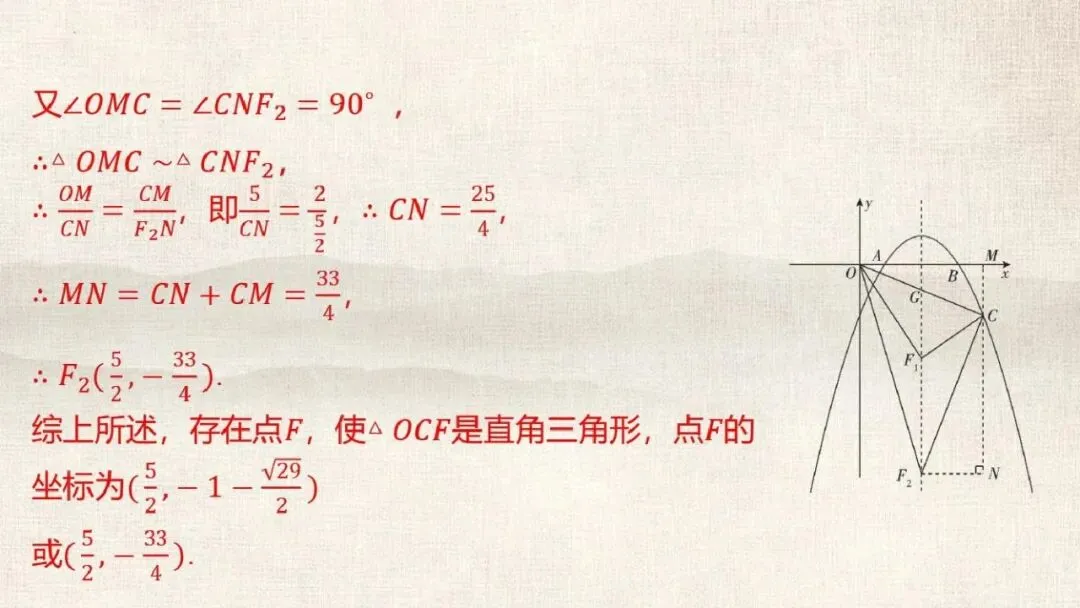 又∠OMC = ∠CNF₂ = 90°,
∴△ OMC ~△ CNF₂,
∴ OM/CN = CM/F₂N, 即 5/CN = 2/(5/2), ∴ CN = 25/4,
∴ MN = CN + CM = 33/4,
∴ F₂(5/2, −33/4).
综上所述，存在点F，使△ OCF是直角三角形，点F的
坐标为(5/2, −1 − √29/2)
或(5/2, −33/4).
y
A
M
O
B
x
G
C
F₁
F₂
N